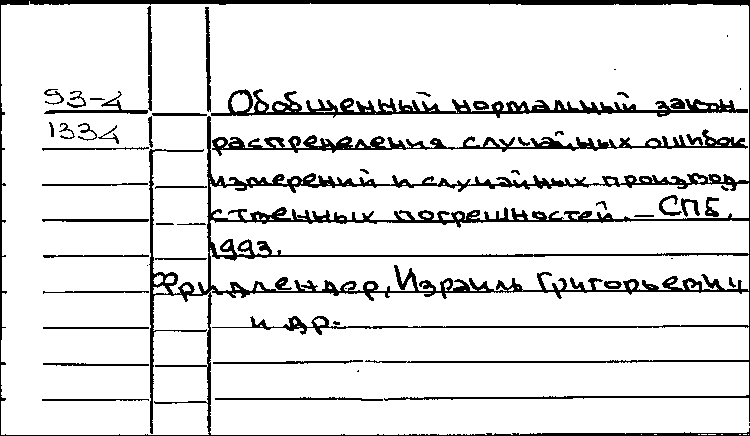 93-4
Обобщенный нормальный закон
1334
распределения случайных ошибок
измерений и случайных производ-
ственных погрешностей. – СПб,
1993.
Фридлендер, Израиль Григорьевич
и др.